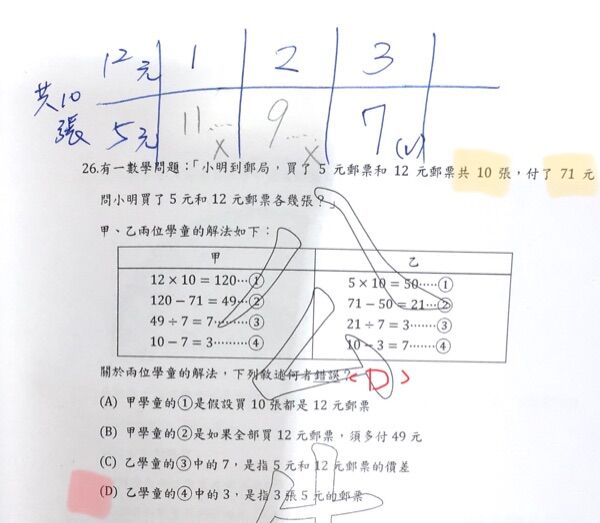 12元 1 2 3
共10張 5元 11…… 9…… 7 (v)
x x
26.有一數學問題：「小明到郵局，買了 5 元郵票和 12 元郵票共 10 張，付了 71 元
問小明買了 5 元和 12 元郵票各幾張？」
甲、乙兩位學童的解法如下：
甲 乙
12 × 10 = 120⋯① 5 × 10 = 50⋯⋯①
120 − 71 = 49⋯② 71 − 50 = 21⋯②
49 ÷ 7 = 7⋯⋯③ 21 ÷ 7 = 3⋯⋯③
10 − 7 = 3⋯⋯⋯④ 10 − 3 = 7⋯⋯④
關於兩位學童的解法，下列敘述何者錯誤？<D>
(A) 甲學童的①是假設買 10 張都是 12 元郵票
(B) 甲學童的②是如果全部買 12 元郵票，須多付 49 元
(C) 乙學童的③中的 7，是指 5 元和 12 元郵票的價差
(D) 乙學童的④中的 3，是指 3 張 5 元的郵票